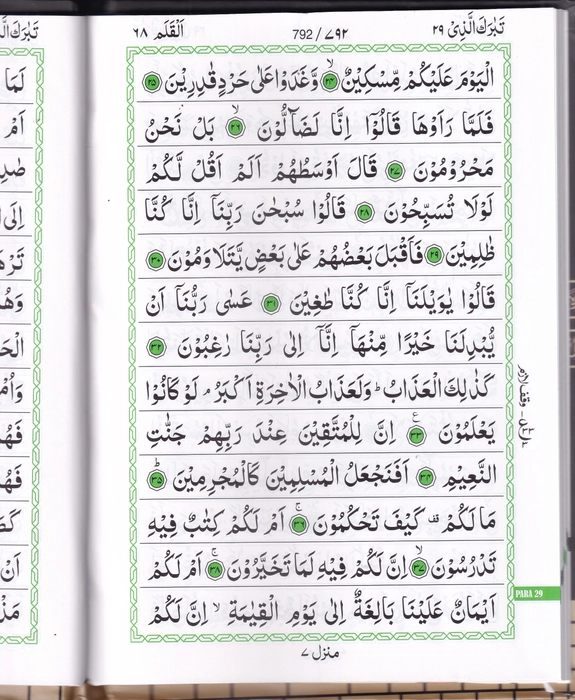 تَبٰرَكَ الَّذِیْ ٢٩
792/٧٩٢
اَلْقَلَم ٦٨
الْیَوْمَ عَلَیْكُمْ مِّسْكِیْنٌ ٢٤ وَّغَدَوْا عَلٰی حَرْدٍ قٰدِرِیْنَ ٢٥
فَلَمَّا رَاَوْهَا قَالُوْۤا اِنَّا لَضَآلُّوْنَ ٢٦ بَلْ نَحْنُ
مَحْرُوْمُوْنَ ٢٧ قَالَ اَوْسَطُهُمْ اَلَمْ اَقُلْ لَّكُمْ
لَوْلَا تُسَبِّحُوْنَ ٢٨ قَالُوْا سُبْحٰنَ رَبِّنَاۤ اِنَّا كُنَّا
ظٰلِمِیْنَ ٢٩ فَاَقْبَلَ بَعْضُهُمْ عَلٰی بَعْضٍ یَّتَلَاوَمُوْنَ ٣٠
قَالُوْا یٰوَیْلَنَاۤ اِنَّا كُنَّا طٰغِیْنَ ٣١ عَسٰی رَبُّنَاۤ اَنْ
یُّبْدِلَنَا خَیْرًا مِّنْهَاۤ اِنَّاۤ اِلٰی رَبِّنَا رٰغِبُوْنَ ٣٢
كَذٰلِكَ الْعَذَابُ ؕ وَلَعَذَابُ الْاٰخِرَةِ اَكْبَرُ ۘ لَوْ كَانُوْا
یَعْلَمُوْنَ ٣٣ اِنَّ لِلْمُتَّقِیْنَ عِنْدَ رَبِّهِمْ جَنّٰتِ
النَّعِیْمِ ٣٤ اَفَنَجْعَلُ الْمُسْلِمِیْنَ كَالْمُجْرِمِیْنَ ٣٥
مَا لَكُمْ ۥ كَیْفَ تَحْكُمُوْنَ ٣٦ اَمْ لَكُمْ كِتٰبٌ فِیْهِ
تَدْرُسُوْنَ ٣٧ اِنَّ لَكُمْ فِیْهِ لَمَا تَخَیَّرُوْنَ ٣٨ اَمْ لَكُمْ
اَیْمَانٌ عَلَیْنَا بَالِغَةٌ اِلٰی یَوْمِ الْقِیٰمَةِ ۙ اِنَّ لَكُمْ
PARA 29
منزل ٧